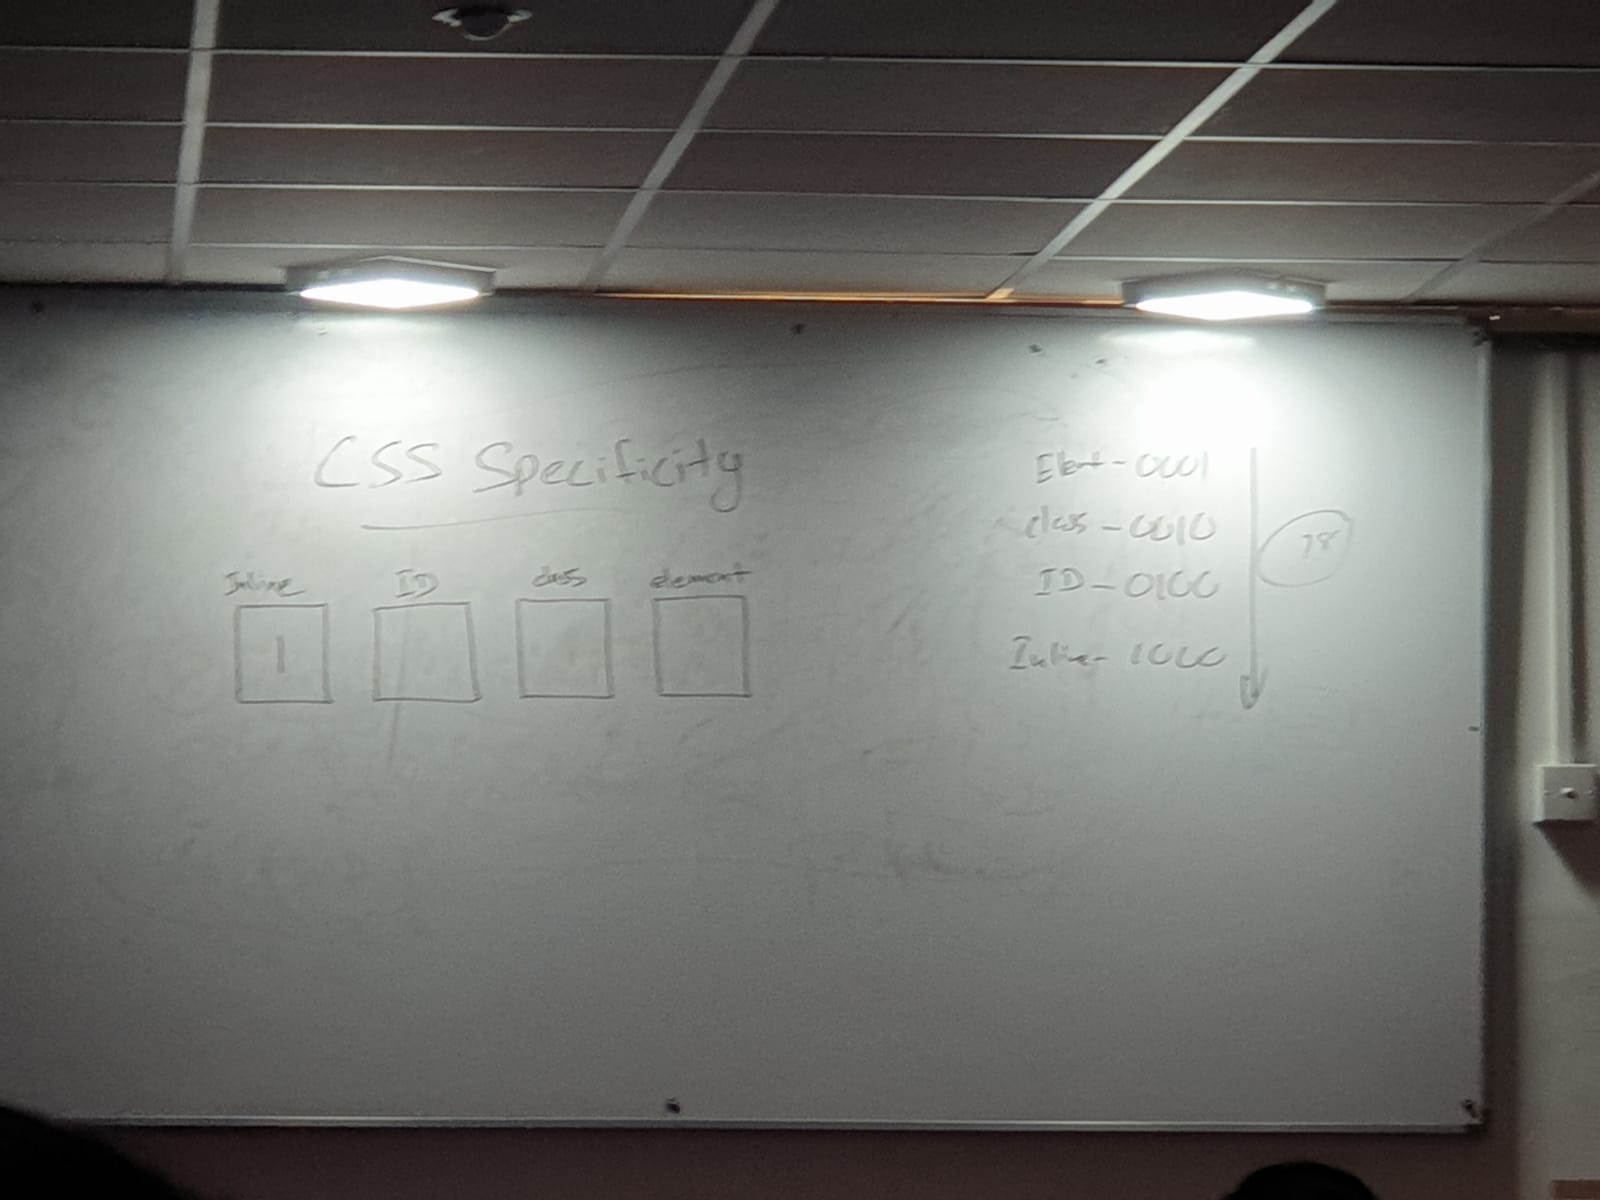 CSS Specificity
Inline ID class element
1
Elent - 0001
class - 0010
ID - 0100
Inline - 1000